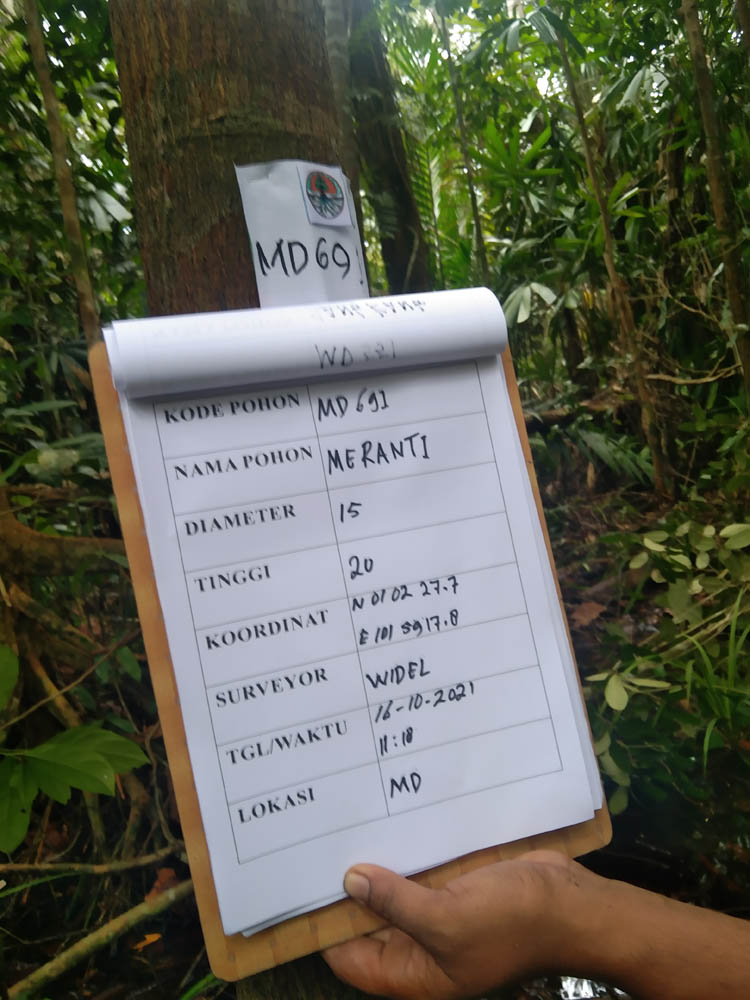 MD691
KODE POHON MD 691
NAMA POHON MERANTI
DIAMETER 15
TINGGI 20
KOORDINAT N 01 02 27.7
E 101 59 17.8
SURVEYOR WIDEL
TGL/WAKTU 16-10-2021
11:18
LOKASI MD